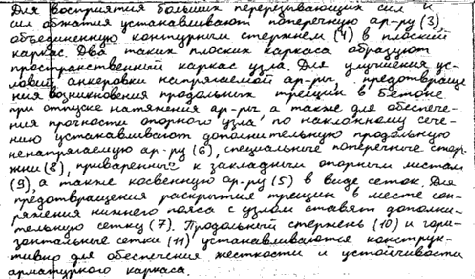 Для восприятия больших перерезывающих сил и
сил обжатия устанавливают поперечную ар-ру (3),
объединенную контурным стержнем (4) в плоский
каркас. Два таких плоских каркаса образуют
пространственный каркас узла. Для улучшения ус-
ловий анкеровки напрягаемой ар-ры, предотвраще
ния возникновения продольных трещин в бетоне
при отпуске натяжения ар-ры а также для обеспече-
ния прочности опорного узла по наклонному сече-
нию устанавливают дополнительную продольную
ненапрягаемую ар-ру (6), специальные поперечные стер-
жни (8), приваренный к закладным опорным листам
(9), а также косвенную ар-ру (5) в виде сеток. Для
предотвращения раскрытия трещин в месте соп-
ряжения нижнего пояса с узлом ставят дополни-
тельную сетку (7). Продольный стержень (10) и гори-
зонтальные сетки (11) устанавливаются конструк-
тивно для обеспечения жесткости и устойчивости
арматурного каркаса.